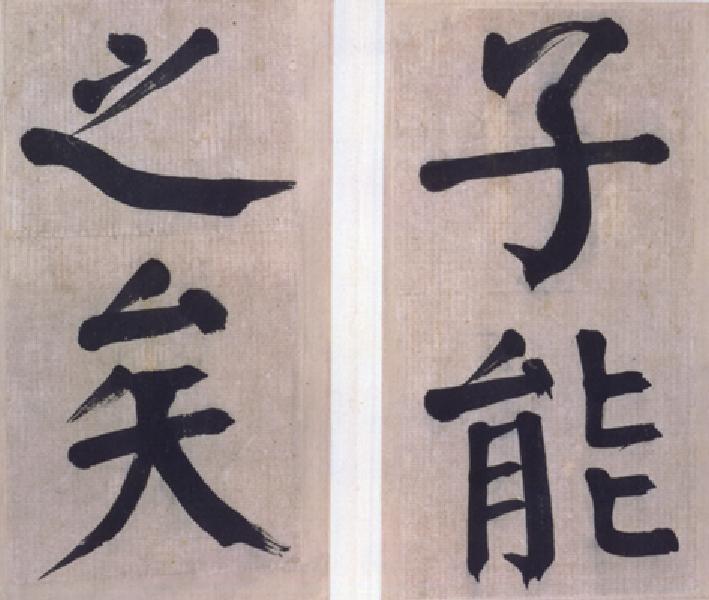 子能
之矣